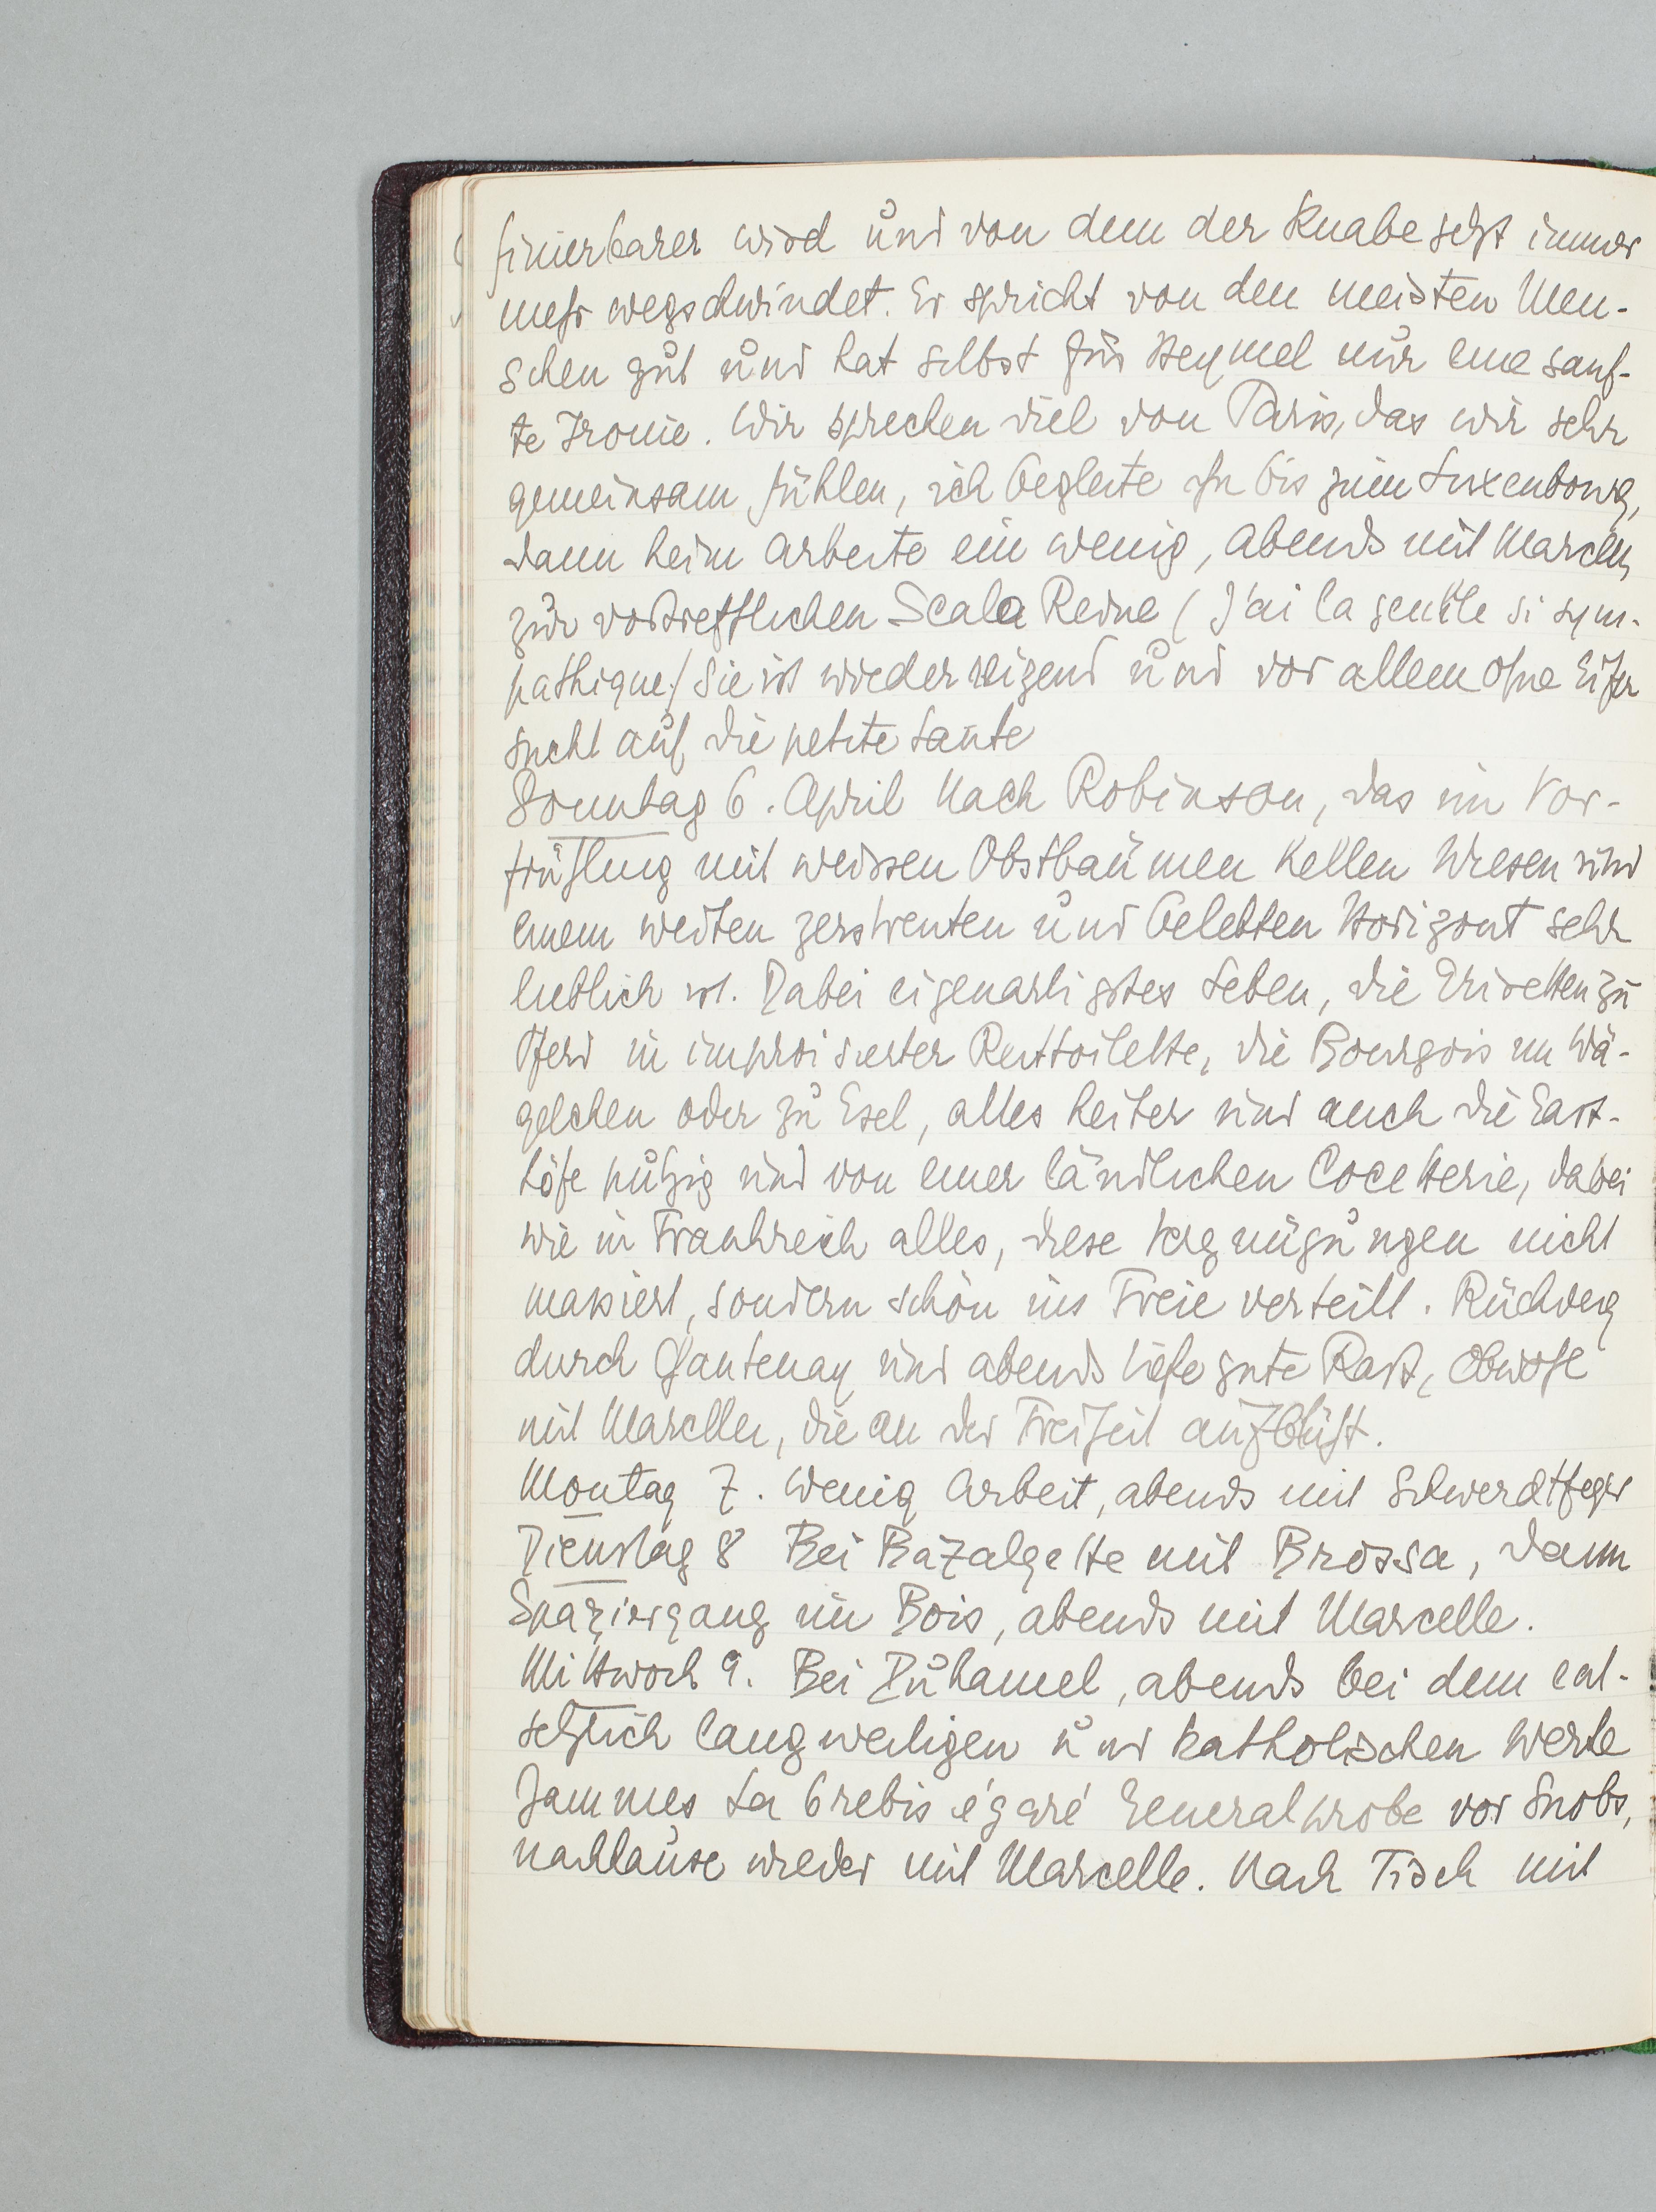 finierbarer wird und von dem der Knabe jetzt immer
mehr wegschwindet. Er spricht von den meisten Men-
schen gut und hat selbst für Heymel nur eine sanf-
te Ironie. Wir sprechen viel von Paris, das wir sehr
gemeinsam fühlen, ich begleite ihn bis zum Luxembourg,
dann heim arbeite ein wenig, abends mit Marcelle
zur vortrefflichen Scala Revue (J'ai la gentille si sym-
pathique) Sie ist wieder reizend und vor allem ohne Eifer
sucht auf die petite
Sonntag 6. April Nach Robinson, das im Vor-
frühling mit weissen Obstbäumen hellen Wiesen und
einem weiten zerstreuten und belebten Horizont sehr
lieblich ist. Dabei eigenartigstes Leben, die Grisetten zu
Pferd in improvisierter Reittoilette, die Bourgois im Wä-
gelchen oder zu Esel, alles heiter und auch die Gast-
höfe putzig und von einer ländlichen Cocetterie, dabei
wie in Frankreich alles, diese Vergnügungen nicht
massiert, sondern schön ins Freie verteilt. Rückweg
durch Fontenay und abends tiefe gute Rast, obwohl
mit Marcelle, die an der Freiheit aufblüht.
Montag 7. Wenig Arbeit, abends mit Schwerdtfeger
Dienstag 8 Bei Bazalgette mit Brossa, dann
Spaziergang im Bois, abends mit Marcelle.
Mittwoch 9. Bei Duhamel, abends bei dem ent-
setzlich langweiligen und katholischen Werke
Jammes La brebis égaré Generalprobe vor Snobs,
nachhause wieder mit Marcelle. Nach Tisch mit